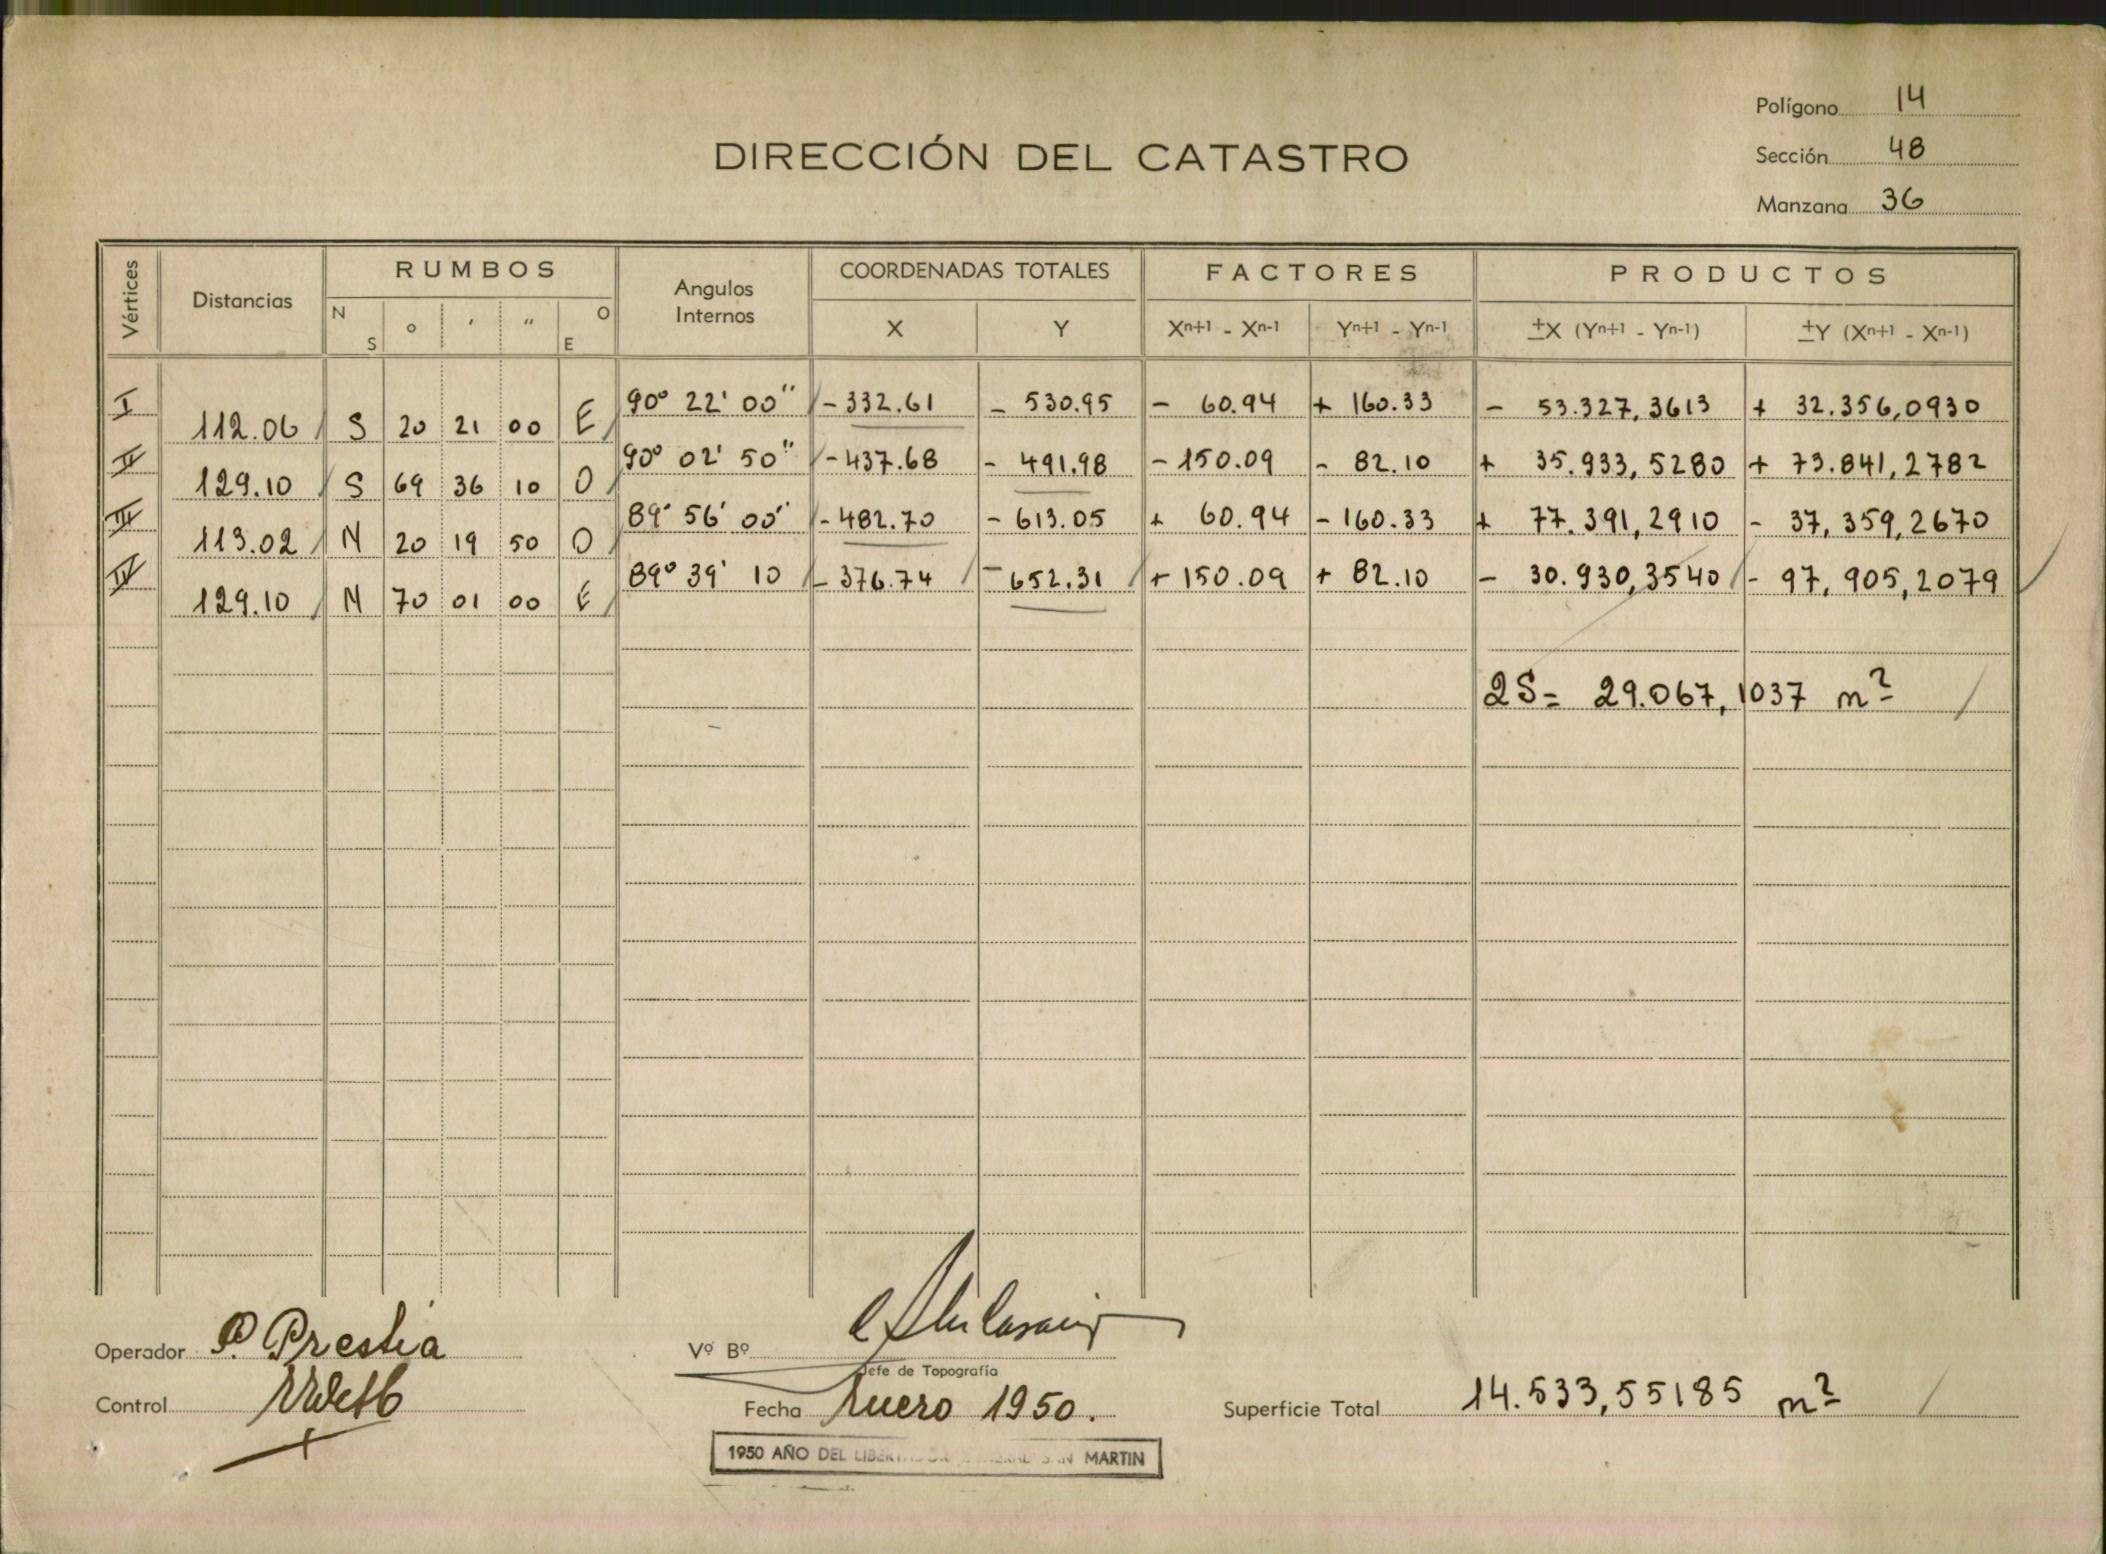 Polígono 14
Sección 48
Manzana 36
DIRECCIÓN DEL CATASTRO
Vértices Distancias RUMBOS Angulos Internos COORDENADAS TOTALES FACTORES PRODUCTOS
N S ° ' " O E X Y Xn+1 - Xn-1 Yn+1 - Yn-1 ±X (Yn+1 - Yn-1) ±Y (Xn+1 - Xn-1)
I 90° 22' 00" - 332.61 - 530.95 - 60.94 + 160.33 - 53.327,3613 + 32.356,0930
112.06 S 20 21 00 E
II 90° 02' 50" - 437.68 - 491.98 - 150.09 - 82.10 + 35.933,5280 + 73.841,2782
129.10 S 69 36 10 O
III 89° 56' 00" - 482.70 - 613.05 + 60.94 - 160.33 + 77.391,2910 - 37,359,2670
113.02 N 20 19 50 O
IV 89° 39' 10 - 376.74 - 652.31 + 150.09 + 82.10 - 30.930,3540 - 97,905,2079
129.10 N 70 01 00 E
2S= 29.067,1037 m²
Operador P. Prestia
Vº Bº
Jefe de Topografía
Control
Fecha Enero 1950.
Superficie Total 14.533,55185 m²
1950 AÑO DEL LIBERTADOR GENERAL SAN MARTIN